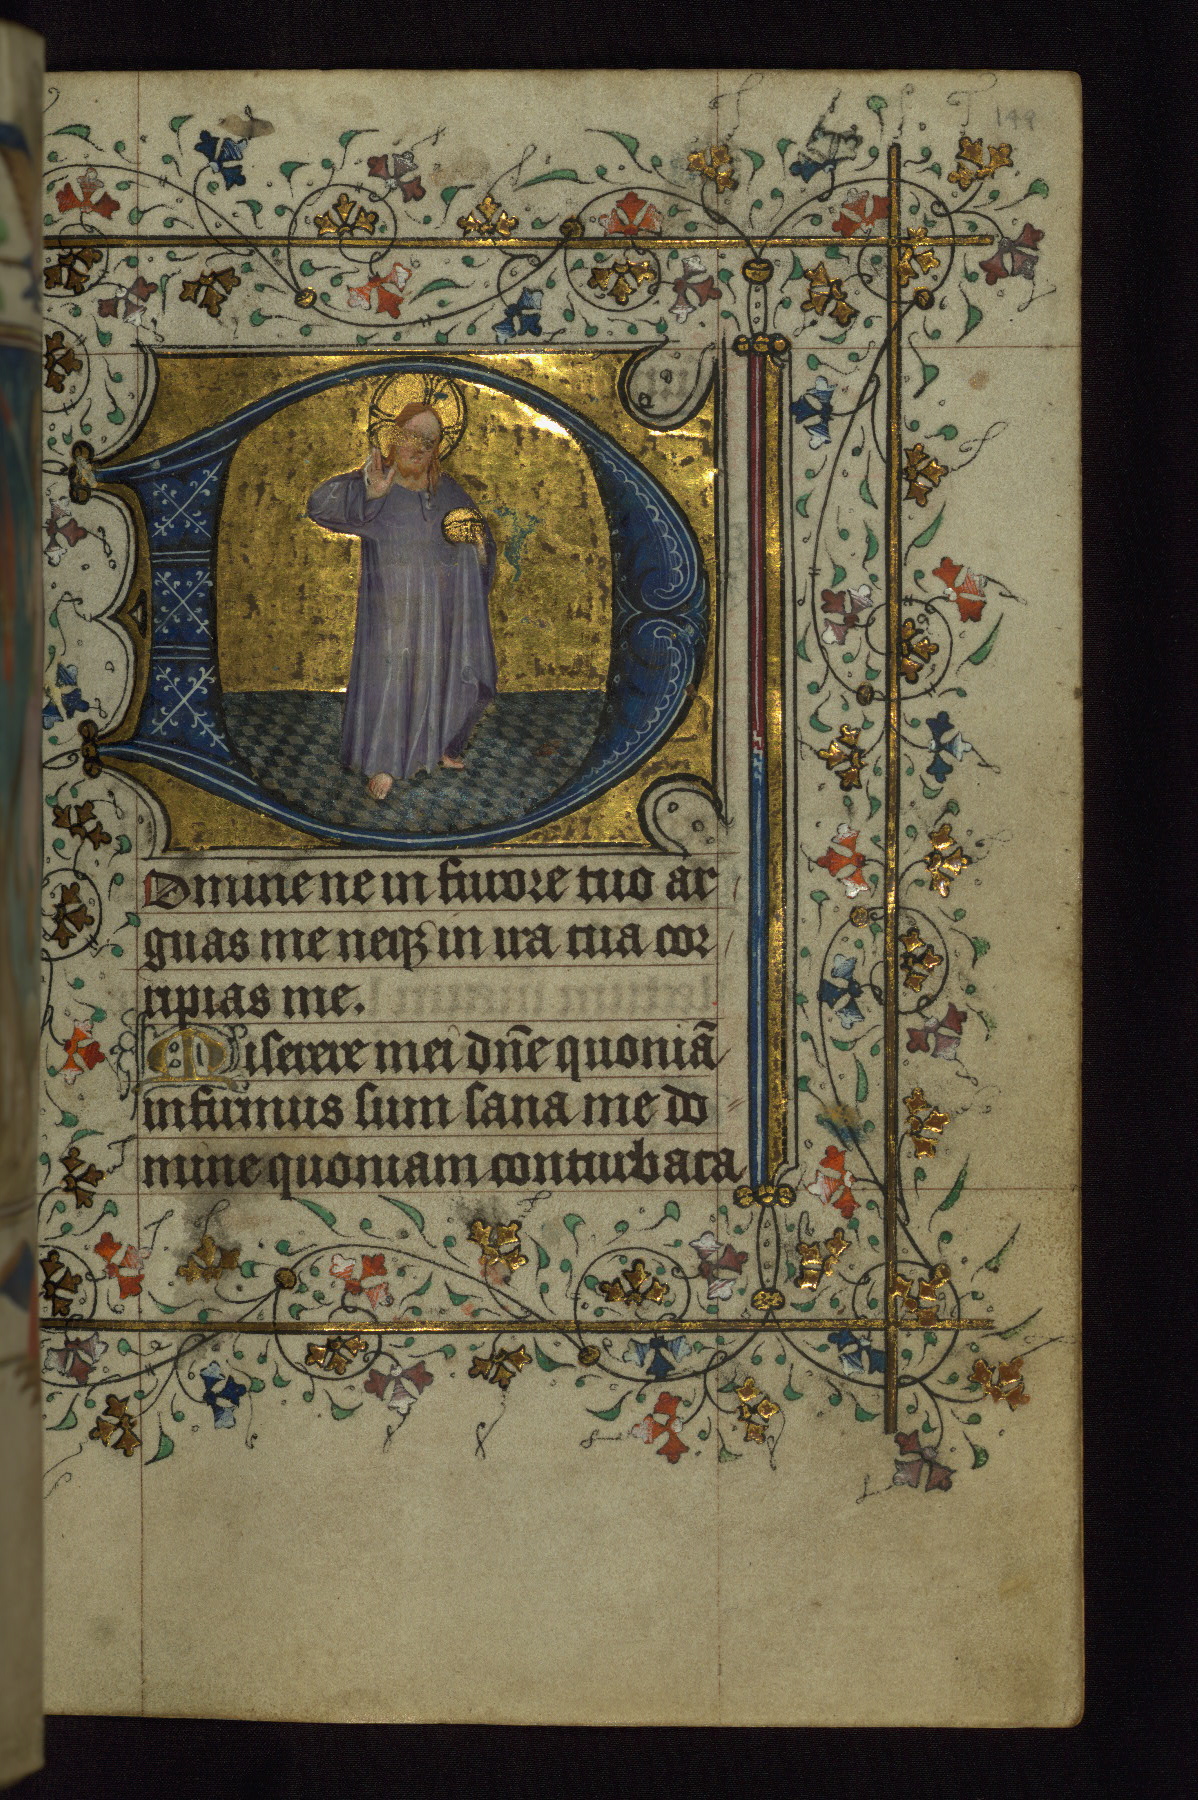 149
Domine ne in furore tuo ar
guas me neqꝫ in ira tua cor
ripias me.
Miserere mei dn̄e quoniā
infirmus sum sana me do
mine quoniam conturbata